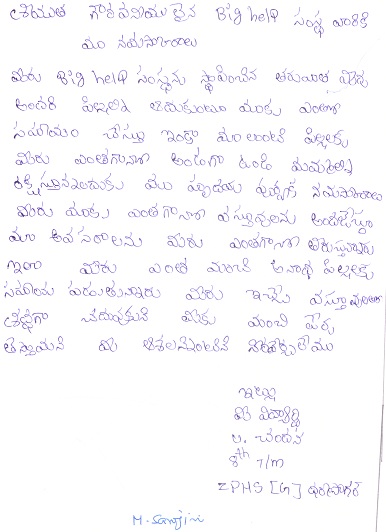 శ్రీయుత గౌరవనీయులైన Big help సంస్థ వారికి
మా నమస్కారాలు
మీరు Big help సంస్థను స్థాపించిన తరువాత పేద
అందరి పిల్లలని ఆదుకుంటూ మాకు ఎంతో
సహాయం చేస్తూ ఇంకా మాలాంటి పిల్లలకు
మీరు ఎంతగానో అండగా ఉండి మమ్మల్ని
రక్షిస్తున్నందుకు మా హృదయ పూర్వక నమస్కారాలు
మీరు మాకు ఎంతగానో వస్తువులను అందజేస్తూ
మా అవసరాలను మీరు ఎంతగానో తీరుస్తున్నారు
ఇలా మీరు ఎంత మంది అనాథ పిల్లలకు
సహాయ పడుతున్నారు మీరు ఇచ్చిన వస్తువులతో
శ్రద్ధగా చదువుకుని మీకు మంచి పేరు
తెస్తామని మీ ఆశలను
ఇట్లు
మీ విద్యార్థి
ల. చందన
8th T/M
ZPHS [G]
M. Sarojini